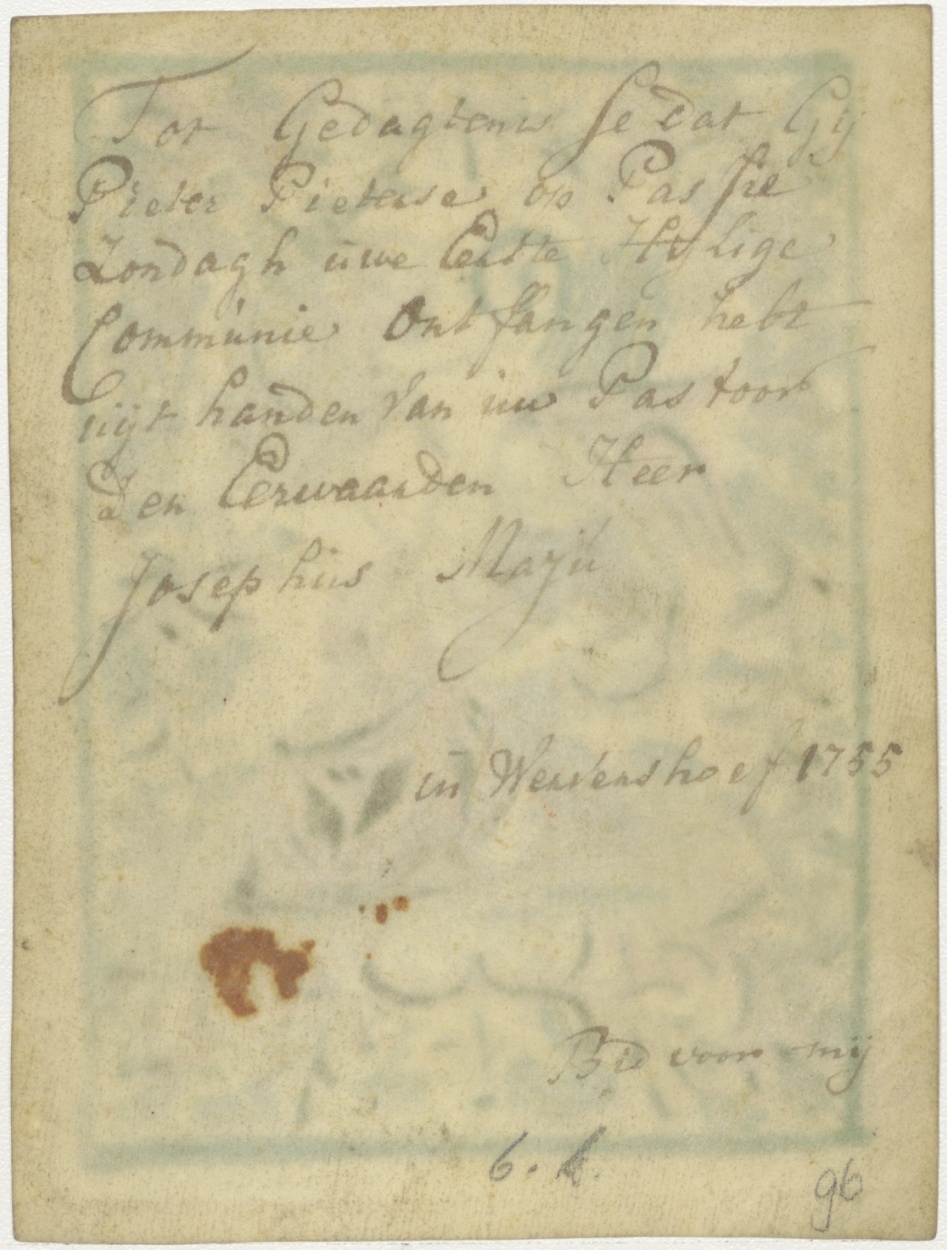 Tot Gedagtenis se dat Gij
Pieter Pieterse op Passie
Zondagh uwe Eerste Hylige
Communie Ontfangen hebt
uijt handen van uw Pastoor
den Eerwaarden Heer
Josephus
in Wervershoef 1755
Bid voor mij
6.
96